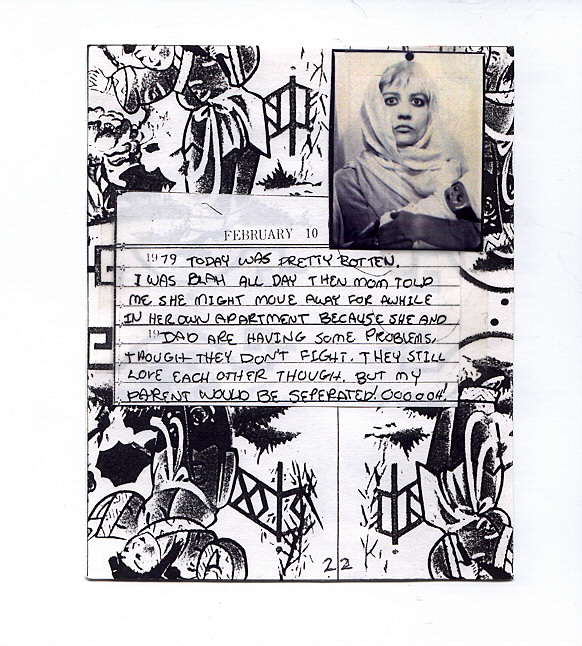 FEBRUARY 10
1979 TODAY WAS PRETTY ROTTEN.
I WAS BLAH ALL DAY THEN MOM TOLD
ME SHE MIGHT MOVE AWAY FOR AWHILE
IN HER OWN APARTMENT BECAUSE SHE AND
19 DAD ARE HAVING SOME PROBLEMS,
THOUGH THEY DON'T FIGHT. THEY STILL
LOVE EACH OTHER THOUGH. BUT MY
PARENT WOULD BE SEPERATED! OOOOOH!
22